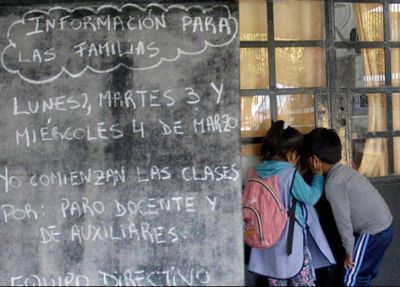 INFORMACIÓN PARA
LAS FAMILIAS
LUNES 2, MARTES 3 Y
MIÉRCOLES 4 DE MARZO
NO COMIENZAN LAS CLASES
POR: PARO DOCENTE Y
DE AUXILIARES.
EQUIPO DIRECTIVO